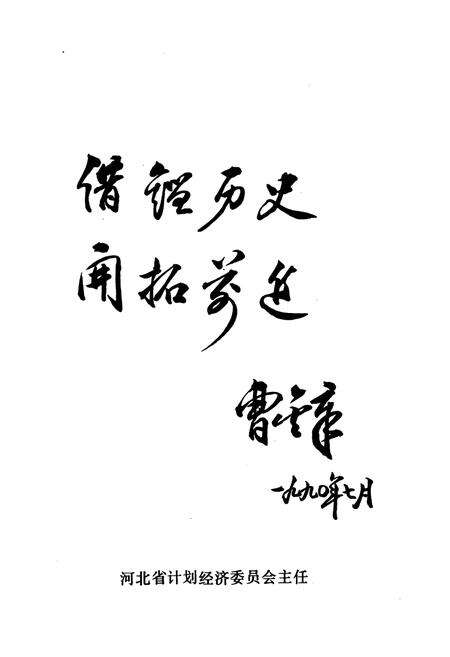 借鉴历史
开拓前进
曹
一九九〇年七月
河北省计划经济委员会主任